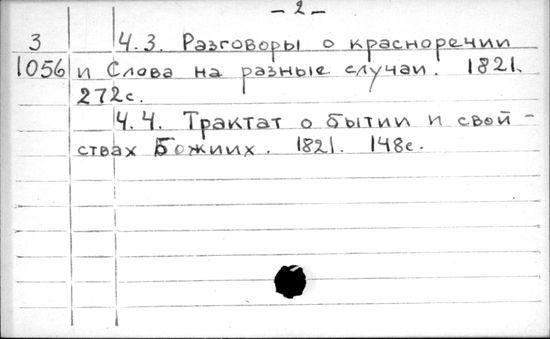 – 2 –
З Ч.3. Разговоры о красноречии
1056 и Слова на разные случаи. 1821.
272с.
Ч.4. Трактат о бытии и свой-
ствах Божиих. 1821. 148с.